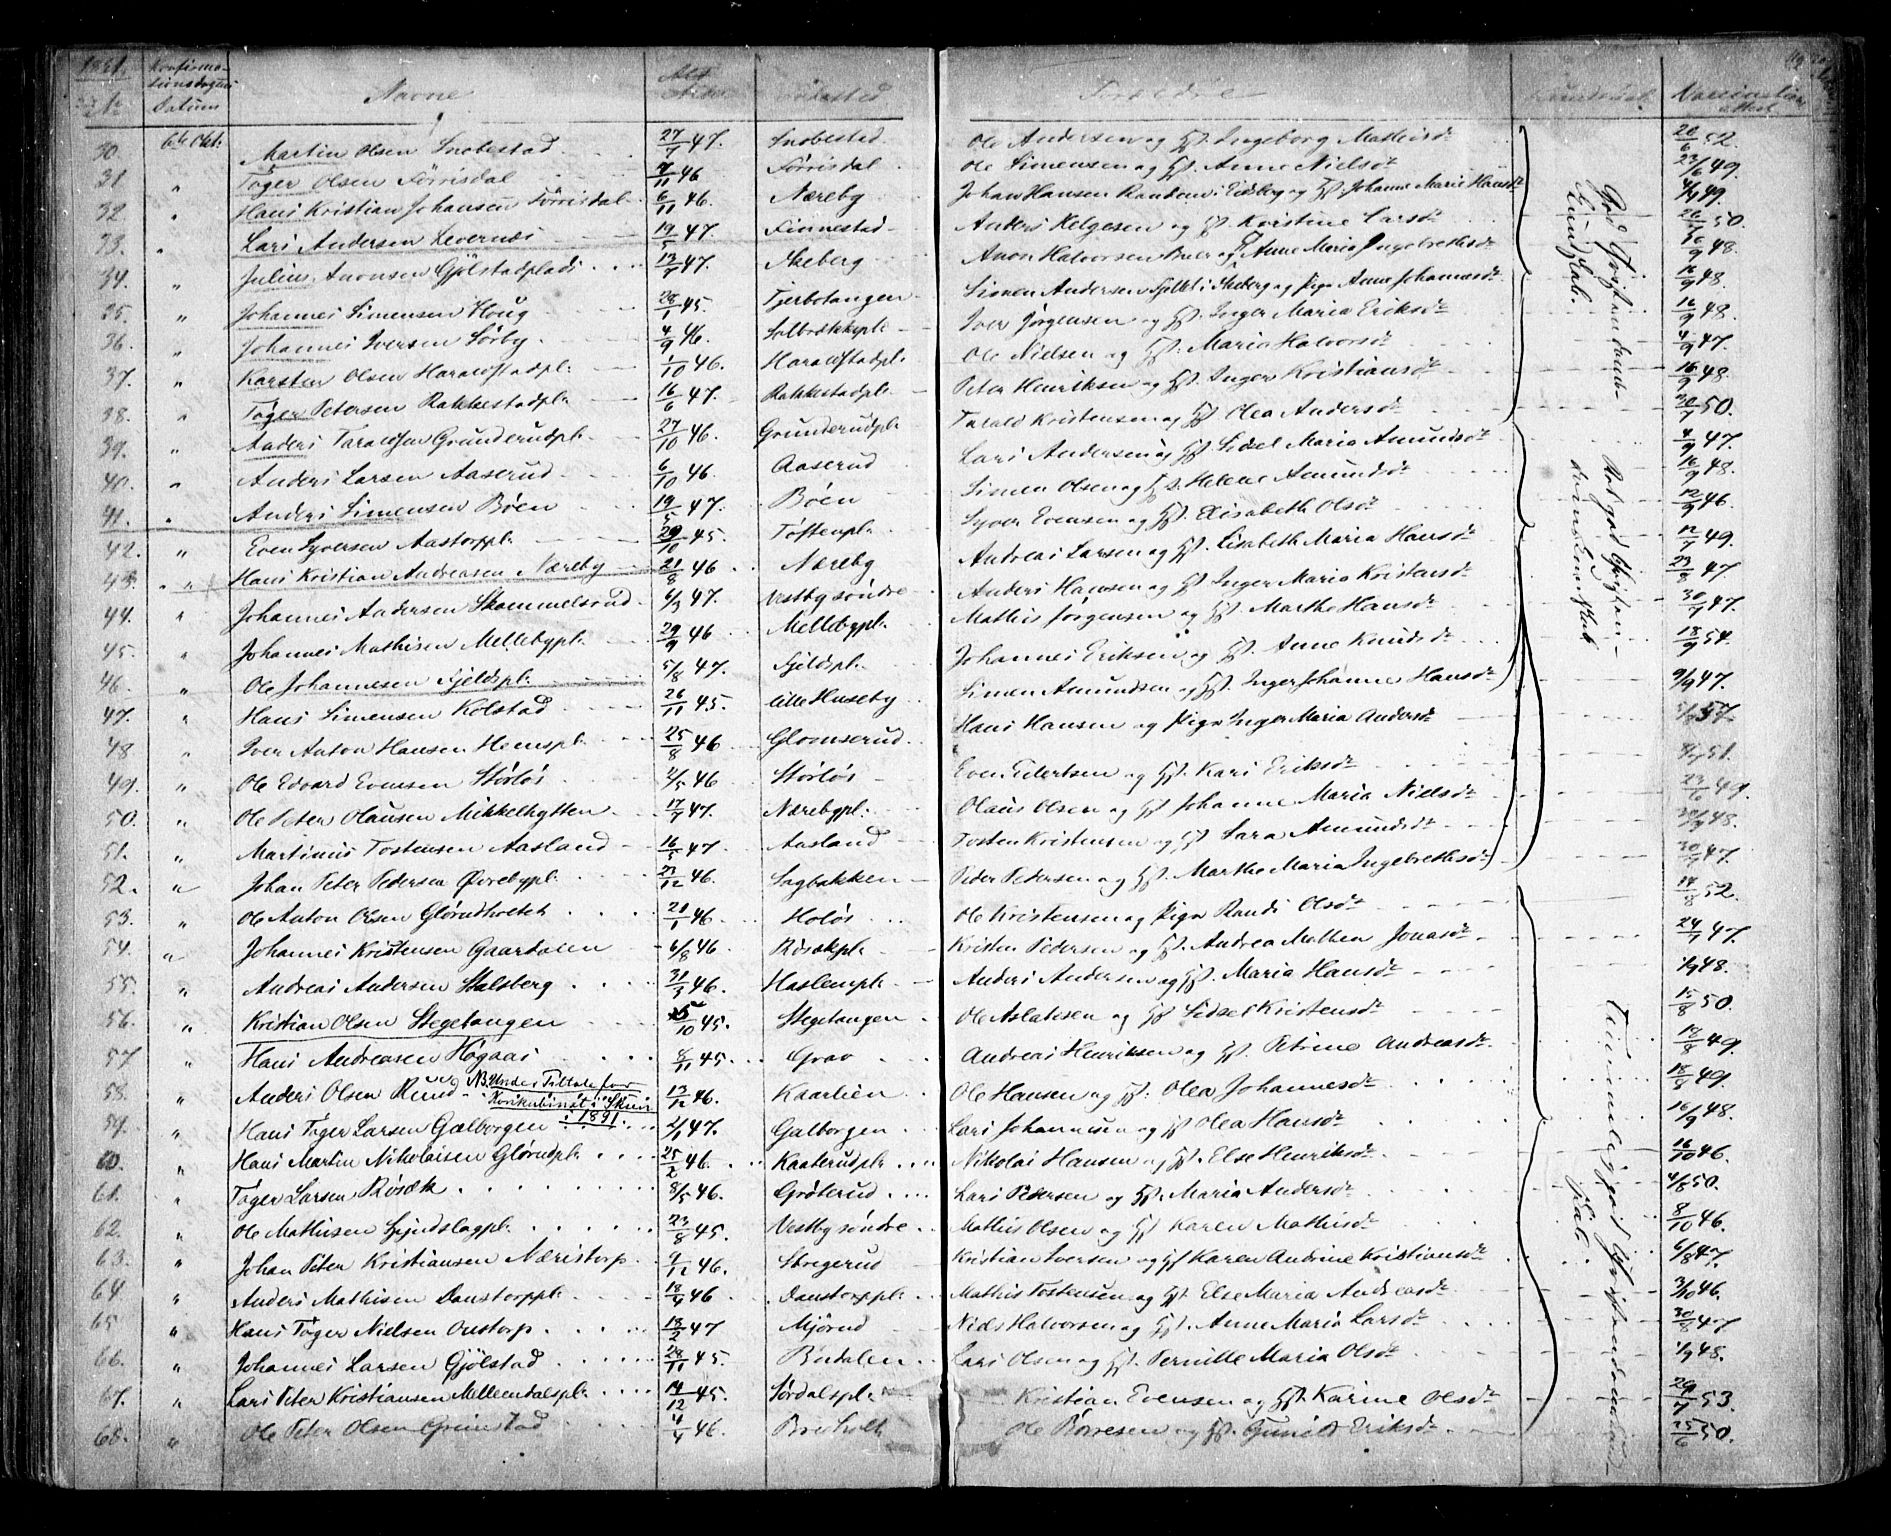 1861. Konfirmationsdagens Datum Navne Alder Fødested Forældre Kundskab Vaccinations attest
30. 6te Okt. Martin Olsen Snobestad 27/7 47. Snobestad Ole Andersen og Hst. Ingeborg Mathisdr 20/6 52.
31 " Töger Olsen Förrisdal 7/11 46 Förrisdal Ole Simensen og Hst. Anne Nielsdr 23/6 49.
32 " Hans Kristian Johansen Förrisdal 6/11 46. Næreby Johan Hansen Randem i Eidberg og Hst. Johanne Marie Hansdr 49.
33. " Lars Andersen Levernæs 19/5 47. Finnestad Anders Helgesen og Hst. Kristine Larsdr 50.
34. " Julius Aronsen Gjölstadplads 13/7 47. Skeberg Aron Halvorsen og Hst. Anne Maria Ingebrethsdr 48.
35. " Johannes Simensen Houg 28/1 45. Tjerbotangen Simen Andersen i Skeberg og Pige Anne Johannesdr 16/9 48.
36. " Johannes Iversen Sörby 4/9 46. Solbrækkepl. Iver Jörgensen og Hst. Inger Maria Eriksdr 16/9 48.
37. " Karsten Olsen Haraldstadpl. 1/10 46. Haraldstadpl. Ole Nielsen og Hst. Maria Halvorsdr 4/9 47.
38. " Töger Petersen Rakkestadpl. 16/6 47. Rakkestadpl. Peter Henriksen og Hst. Inger Kristiansdr 16/9 48.
39. " Anders Taraldsen Grunderudpl. 27/10 46. Grunderudpl. Tarald Kristensen og Hst. Olea Andersdr 50.
40. " Anders Larsen Aaserud 6/10 46. Aaserud Lars Andersen og Hst. Sidsel Maria Amundsdr 4/9 47.
41. " Anders Simensen Böen 19/5 47. Böen Simen Olsen og Hst. Helene Amundsdr 16/9 48.
42. " Even Syversen Aastorppl. 29/10 45. Töftenpl. Syver Evensen og Hst. Elisabeth Olsdr 12/9 46.
43. " Hans Kristian Andreasen Næreby 21/8 46 Næreby Andreas Larsen og Hst. Lisabeth Maria Hansdr 12/7 49.
44. " Johannes Andersen Skammelsrud 6/3 47. Vestby söndre Anders Hansen og Hst. Inger Maria Kristensdr 47
45. " Johannes Mathisen Mellebypl. 29/9 46 Mellebypl. Mathis Jörgensen og Hst. Marthe Hansdr 47.
46. " Ole Johannesen Fjeldspl. 5/8 47. Fjeldspl. Johannes Eriksen og Hst. Anne Knudsdr 18/9 54.
47. " Hans Simensen Kolstad 26/11 45. lille Huseby Simen Amundsen og Hst. Inger Johanne Hansdr 9/9 47.
48 " Iver Anton Hansen Hemspl. 25/8 46 Glomserud Hans Hansen og Pige Inger Maria Andersdr 57.
49. " Ole Edvard Evensen Störlös 2/5 46 Störlös Even Eilertsen og Hst. Kari Eriksdr 51.
50. " Ole Peter Olausen Mikkelhytten 17/7 47. Nærebypl. Olaus Olsen og Hst. Johanne Maria Nielsdr 23/6 49.
51. " Martinus Tostensen Aasland 16/5 47. Aasland Tosten Kristensen og Hst. Sara Amundsdr 48.
52. " Johan Peter Pedersen Övrebypl. 27/12 46. Sagbakken Peder Pedersen og Hst. Marthe Maria Ingebrethsdr 47.
53. " Ole Anton Olsen Glörudholtet 21/1 46 Holös Ole Kristensen og Pige Randi Olsdr 14/8 52.
54. " Johannes Kristensen Gaardalen 6/8 46 Rösækpl. Kristen Pedersen og Hst. Andrea Mathea Jonasdr 24/7 47.
55. " Andreas Andersen Stalsberg 31/3 46. Haslempl. Anders Andersen og Hst. Maria Hansdr 48.
56. " Kristian Olsen Stegetangen 5/10 45. Stegetangen Ole Aslaksen og Hst. Sidsel Kristensdr 15/8 50.
57 " Hans Andreasen Högaas 8/11 45. Grav Andreas Henriksen og Hst. Petrine Andreasdr 49.
58. " Anders Olsen Rud NB. Under Tiltale for Konkubinat i Skien i 1891. 13/12 46. Kaarlien Ole Hansen og Hst. Olea Johannesdr 49.
59. " Hans Töger Larsen Galborgen 2/1 47. Galborgen Lars Johannesen og Hst. Olea Hansdr 16/9 48.
60. " Hans Martin Nikolaisen Glörudpl. 25/2 46. Kaaterudpl. Nikolai Hansen og Hst. Else Henriksdr 16/10 46.
61. " Töger Larsen Rösæk 8/5 46. Gröterud Lars Pedersen og Hst. Maria Andersdr 50.
62. " Ole Mathisen 23/8 45. Vestby söndre Mathis Olsen og Hst. Karen Mathisdr 8/10 46.
63. " Johan Peter Kristiansen Næristorp 9/12 46. Stregerud Kristian Iversen og Hst. Karen Andrine Kristiansdr 6/8 47.
64 " Anders Mathisen Danstorppl. 18/4 46 Danstorppl. Mathis Tostensen og Hst. Else Maria Andreasdr 3/10 46.
65 " Hans Töger Nielsen Onstorp 18/2 47 Mjörud Niels Halvorsen og Hst. Anne Maria Larsdr 30/8 47
66. " Johannes Larsen Gjölstad 28/11 45. Budalen Lars Olsen og Hst. Pernille Maria Olsdr 48.
67. " Lars Peter Kristiansen Mellemdalspl. 14/12 45. Sördalspl. Kristian Evensen og Hst. Karine Olsdr 53.
68. " Ole Peter Olsen Grimstad 4/4 46. Breiholt Ole Börresen og Hst. Gunild Eriksdr 25/6 50.
God Christendoms-
Kundskab.
Ret god Christen-
domskundskab
Temmelig god Christendomskund-
skab.